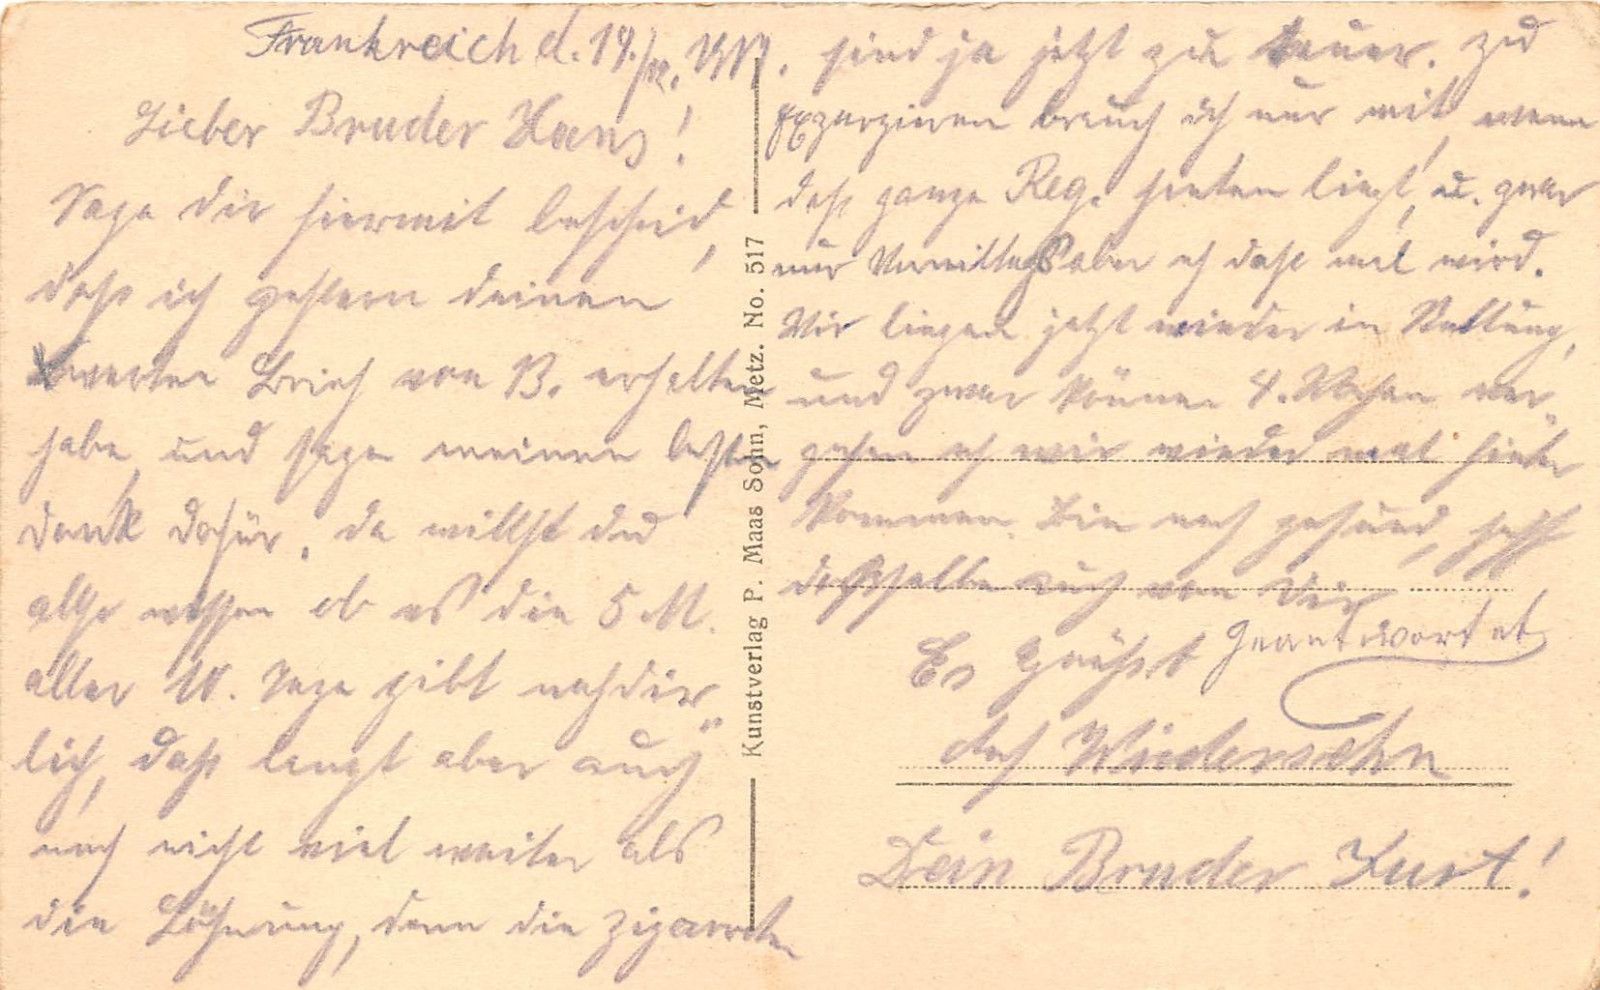 Frankreich d. 19./12. 1917.
Lieber Bruder Hans!
Sage dir hiermit bescheid,
daß ich gestern deinen
werten Brief von B. erhalten
habe, und sage meinen besten
dank dafür, da willst du
also wissen ob es die 5 M.
aller 10. Tage gibt nahdir„
lich, daß langt aber auch
noch nicht viel weiter als
die Löhnung, denn die Zigaretten
sind ja jetzt zu teuer. zu
Exzerzieren brauch ich nur mit, wenn
daß ganze Reg. hinten liegt, u. zwar
nur Vormittags aber eh daß mal wird.
Wir liegen jetzt wieder in Stellung,
und zwar können 4. Wochen ver„
gehen eh wir wieder mal hinter
kommen. Bin noch gesund, hoffe
desselbe auch von Dir
Es Grüßt
geantwortet
auf Wiedersehn
Dein Bruder Kurt!
Kunstverlag P. Maas Sohn, Metz. No. 517